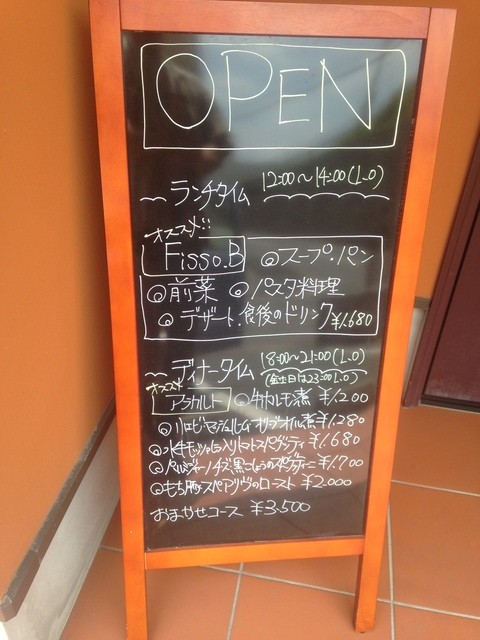 OPEN
ランチタイム 12:00〜14:00(L.O)
オススメ!!
Fisso.B ◎スープ・パン
◎前菜 ◎パスタ料理
◎デザート・食後のドリンク ¥1.680
ディナータイム 18:00〜21:00(L.O)
(金土日は23:00L.O)
オススメ
アラカルト ◎牛ホルモン煮 ¥1.200
オリーブオイル煮 ¥1.280
◎水牛モッツァレラ入りトマトスパゲッティ ¥1.680
黒こしょうのスパゲッティーニ ¥1.700
◎もち豚スペアリヴのロースト ¥2.000
おまかせコース ¥3.500